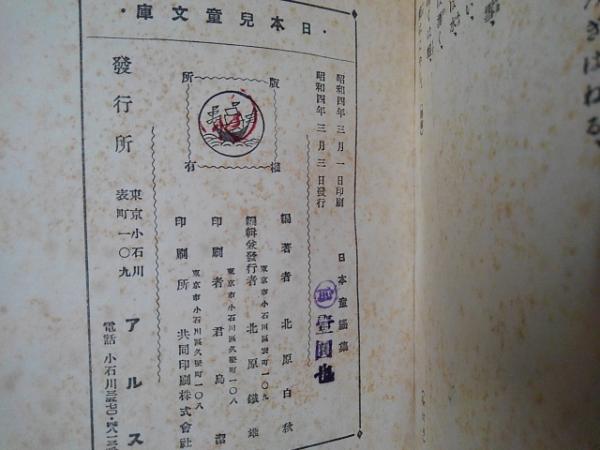 日本兒童文庫
版權所有
昭和四年三月一日印刷
昭和四年三月三日發行
日本童謠集
壹圓也
編著者 北原白秋
東京市小石川區表町一〇九
編輯兼發行者 北原鐵雄
東京市小石川區久堅町一〇八
印刷者 君島潔
東京市小石川區久堅町一〇八
印刷所 共同印刷株式會社
發行所
東京小石川
表町一〇九
アルス
電話 小石川